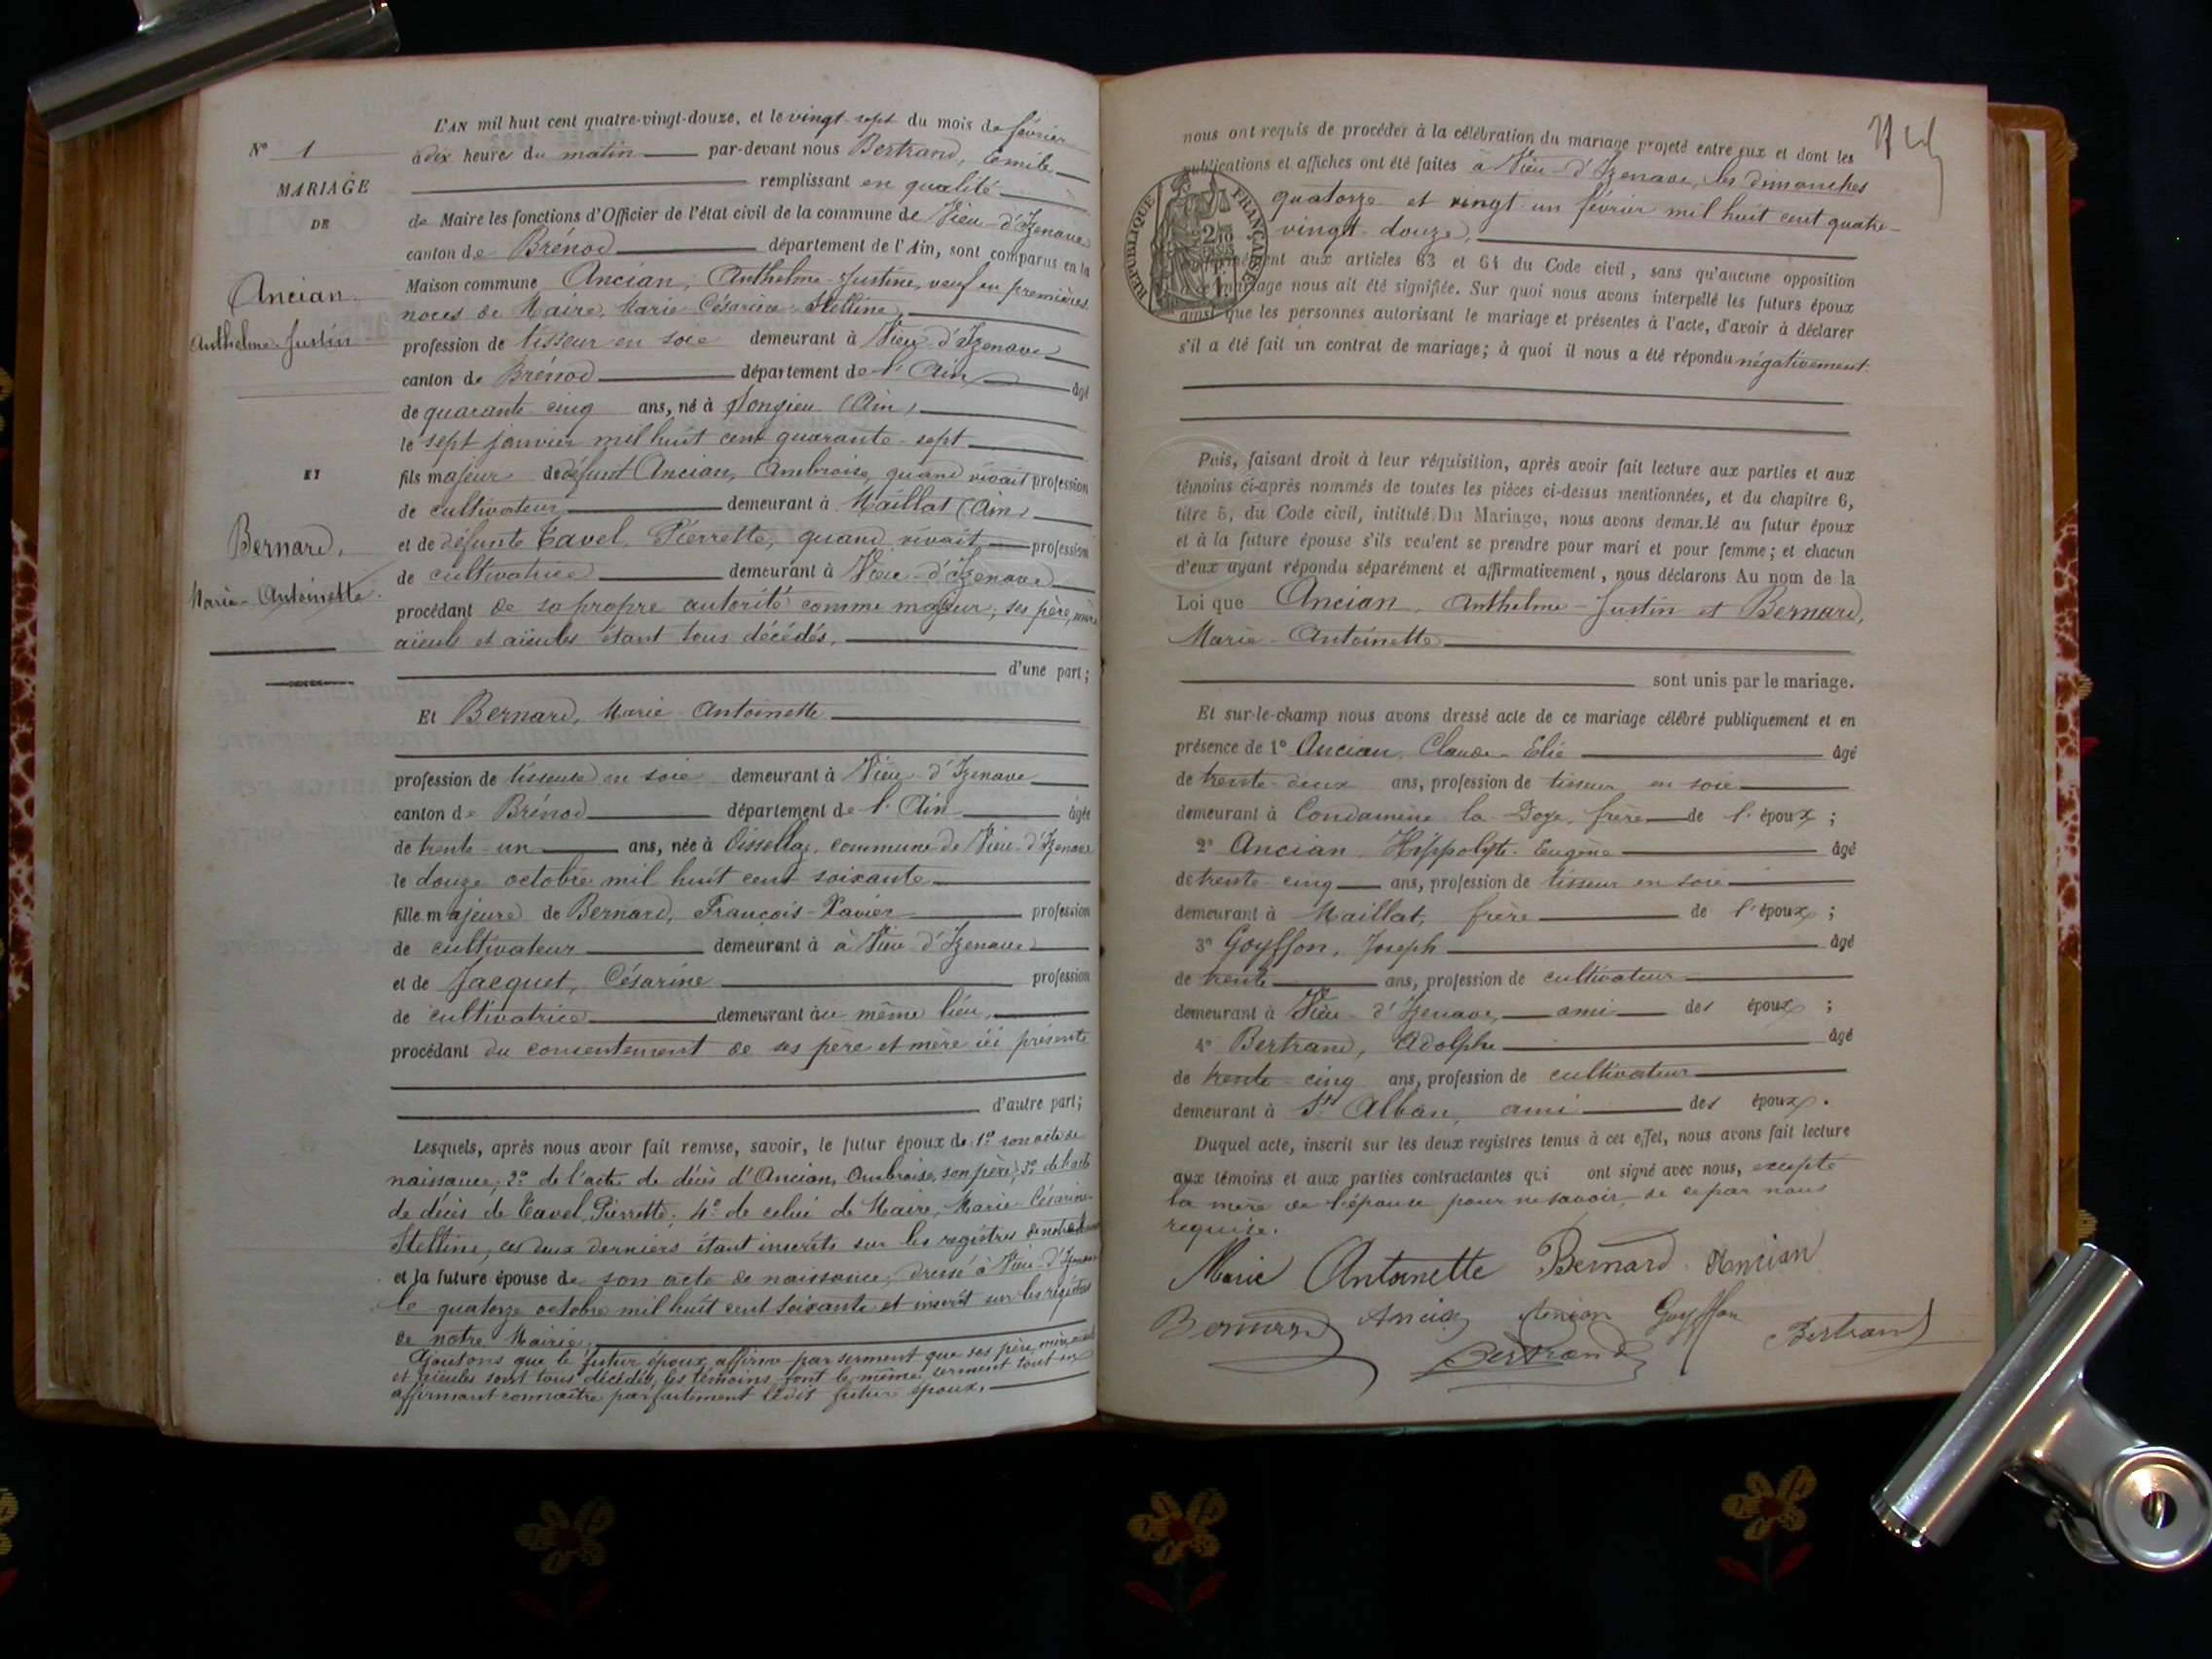 N° 1
MARIAGE
DE
Ancian,
Anthelme-Justin
ET
Bernard,
Marie-Antoinette.
L'AN mil huit cent quatre-vingt-douze, et le vingt-sept du mois de février
à dix heures du matin par-devant nous Bertrand, Emile
remplissant en qualité
de Maire les fonctions d'Officier de l'état civil de la commune de Vieu-d'Izenave
canton de Brénod département de l'Ain, sont comparus en la
Maison commune Ancian, Anthelme-Justine, veuf en premières
noces de Maire, Marie-Césarine-Stelline,
profession de tisseur en soie demeurant à Vieu-d'Izenave
canton de Brénod département de l'Ain âgé
de quarante-cinq ans, né à Songieu (Ain)
le sept janvier mil huit cent quarante-sept
fils majeur de défunt Ancian, Ambroise, quand vivait profession
de cultivateur demeurant à Maillat (Ain)
et de défunte Tavel, Pierrette, quand vivait profession
de cultivatrice demeurant à Vieu-d'Izenave
procédant de sa propre autorité comme majeur, ses père, mère
aïeuls et aïeules étant tous décédés,
d'une part;
Et Bernard, Marie-Antoinette
profession de tisseuse en soie demeurant à Vieu-d'Izenave
canton de Brénod département de l'Ain âgée
de trente-un ans, née à Oissellaz, commune de Vieu-d'Izenave
le douze octobre mil huit cent soixante
fille majeure de Bernard, François-Xavier profession
de cultivateur demeurant à à Vieu-d'Izenave
et de Jacquet, Césarine profession
de cultivatrice demeurant au même lieu,
procédant du consentement de ses père et mère ici présents
d'autre part;
Lesquels, après nous avoir fait remise, savoir, le futur époux de 1° son acte de
naissance; 2° de l'acte de décès d'Ancian, Ambroise, son père; 3° de l'acte
de décès de Tavel, Pierrette; 4° de celui de Maire, Marie-Césarine-
Stelline, ces deux derniers étant inscrits sur les registres de notre
et la future épouse de son acte de naissance, dressé à Vieu-d'Izenave
le quatorze octobre mil huit cent soixante et inscrit sur les registres
de notre Mairie.
Ajoutons que le futur époux affirme par serment que ses père, mère, aïeuls
et aïeules sont tous décédés, les témoins font le même serment tout en
affirmant connaître parfaitement ledit futur époux.
nous ont requis de procéder à la célébration du mariage projeté entre eux et dont les
publications et affiches ont été faites à Vieu-d'Izenave, les dimanches
quatorze et vingt-un février mil huit cent quatre-
vingt-douze,
RÉPUBLIQUE FRANÇAISE
conformément aux articles 63 et 64 du Code civil, sans qu'aucune opposition
à ce mariage nous ait été signifiée. Sur quoi nous avons interpellé les futurs époux
ainsi que les personnes autorisant le mariage et présentes à l'acte, d'avoir à déclarer
s'il a été fait un contrat de mariage; à quoi il nous a été répondu négativement.
Puis, faisant droit à leur réquisition, après avoir fait lecture aux parties et aux
témoins ci-après nommés de toutes les pièces ci-dessus mentionnées, et du chapitre 6,
titre 5, du Code civil, intitulé Du Mariage, nous avons demandé au futur époux
et à la future épouse s'ils veulent se prendre pour mari et pour femme; et chacun
d'eux ayant répondu séparément et affirmativement, nous déclarons Au nom de la
Loi que Ancian, Anthelme-Justin et Bernard,
Marie-Antoinette
sont unis par le mariage.
Et sur-le-champ nous avons dressé acte de ce mariage célébré publiquement et en
présence de 1° Ancian, Claude-Elie âgé
de trente-deux ans, profession de tisseur en soie
demeurant à Condamine-la-Doye, frère de l'époux;
2° Ancian, Hippolyte-Eugène âgé
de trente-cinq ans, profession de tisseur en soie
demeurant à Maillat, frère de l'époux;
3° Goyffon, Joseph âgé
de trente ans, profession de cultivateur
demeurant à Vieu-d'Izenave, ami des époux;
4° Bertrand, Adolphe âgé
de trente-cinq ans, profession de cultivateur
demeurant à St Alban, ami des époux.
Duquel acte, inscrit sur les deux registres tenus à cet effet, nous avons fait lecture
aux témoins et aux parties contractantes qui ont signé avec nous, excepté
la mère de l'épouse pour ne savoir, de ce par nous
requise.
Marie Antoinette Bernard Ancian
Bernard Ancian Ancian Goyffon Bertrand
Bertrand